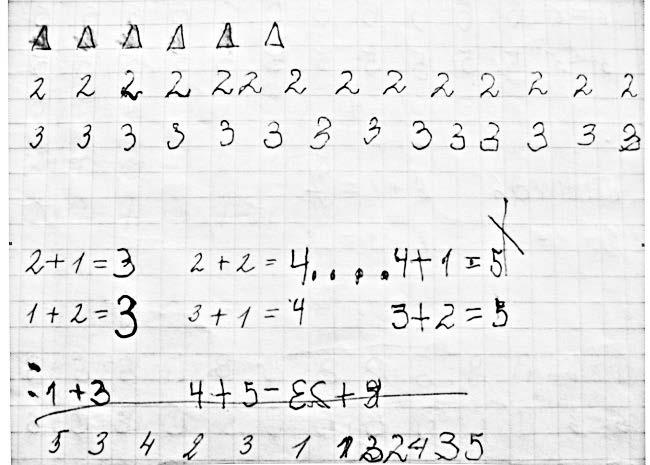 2 2 2 2 2 2 2 2 2 2 2 2 2 2
3 3 3 3 3 3 3 3 3 3 3 3 3 3
2+1=3 2+2=4....4+1=5
1+2=3 3+1=4 3+2=5
:1+3 4+5-
5 3 4 2 3 1 1 3 2 4 3 5